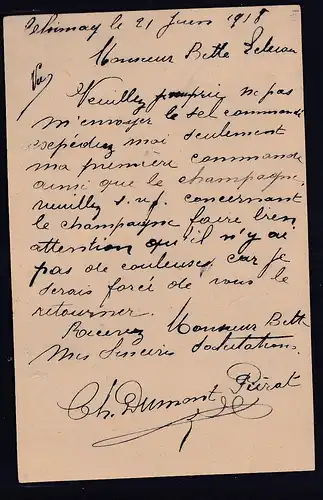 Chimay le 21 Juin 1918
Monsieur Bette
Vu
Veuillez je prie ne pas
m'envoyer le sel commandé
expédiez moi seulement
ma première commande
ainsi que le champagne,
veuillez s.v.p. concernant
le champagne faire bien
attention qu'il n'y ai
pas de couleuses, car je
serais forcé de vous le
retourner.
Recevez Monsieur Bette
Mes Sincères Salutations.
Ch. Dumont